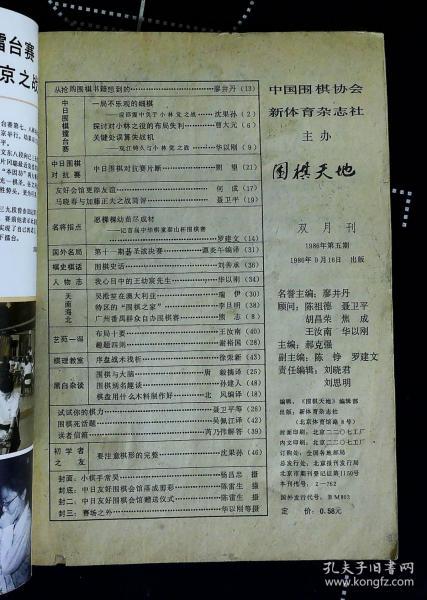 擂台赛
京之战
从抢购围棋书籍想到的……廖井丹(13)
中日围棋擂台赛
一局不乐观的细棋
——应邵震中负于小林觉之战……沈果孙(2)
探讨对小林之役的布局失利……曹大元(6)
关键处误算失战机
……华以刚(9)
中日围棋对抗赛
中日围棋对抗赛片断……(21)
友好会馆更添友谊……何成(17)
马晓春与加藤正大之战简评……聂卫平(19)
名将指点
愿棵棵幼苗尽成材
——记首届中华棋童泰山杯围棋赛
……罗建文(14)
国外名局
第十一期棋圣战决赛……编译(31)
棋史棋话
围棋史话……刘善承(36)
人物志
我心目中的王幼宸先生……华以刚(34)
天南海北
吴淞笙在澳大利亚……(30)
特区的“围棋之家”……李且明(38)
广州番禺群众自办围棋赛……(8)
艺苑一得
布局十要……王汝南(40)
趣题四则……谢裕国(26)
棋理教室
序盘战术浅析……徐荣新(43)
黑白杂谈
围棋与大脑……唐毅摘译(25)
围棋别名趣谈……孙建人(48)
棋盘用什么木料制作好……北风编译(18)
试试你的棋力……聂卫平等(26)
围棋死活题……吴佩江译(42)
读者信箱……芮乃伟解答(39)
初学者之友
要注意棋形的完整……沈果孙(46)
封面:小棋手常昊……杨昌忠 摄
封底:中日友好围棋会馆落成剪彩……陈雷生 摄
封二:中日友好围棋会馆赠送仪式……陈雷生 摄
封三:赛场之外……华以刚等摄
中国围棋协会
新体育杂志社
主办
围棋天地
双月刊
1986年第五期
1986年9月16日 出版
名誉主编:廖井丹
顾问:陈祖德 聂卫平
胡昌荣 焦成
王汝南 华以刚
主编:郝克强
副主编:陈铮 罗建文
责任编辑:刘晓君
刘思明
编辑:《围棋天地》编辑部
出版:新体育杂志社
(北京体育馆路8号)
封面印刷:北京二二〇七工厂
内文印刷:北京二二〇七工厂
订购处:全国各地邮局
总发行处:北京报刊发行局
北京市期刊登记证第1150号
本刊代号:2-762
国外发行代号:BM803
定价:0.58元
孔夫子旧书网
www.kongfz.com